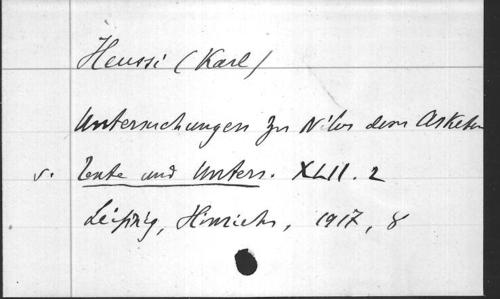 Heussi (Karl)
Untersuchungen zu Nilus dem Asketen
v. Texte und Unters. XLII. 2
Leipzig, Hinrichs, 1917, 8